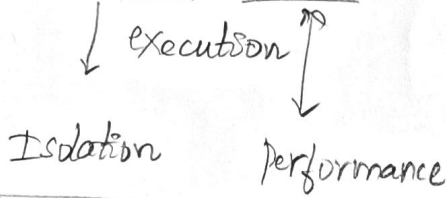 execution
Isolation
performance